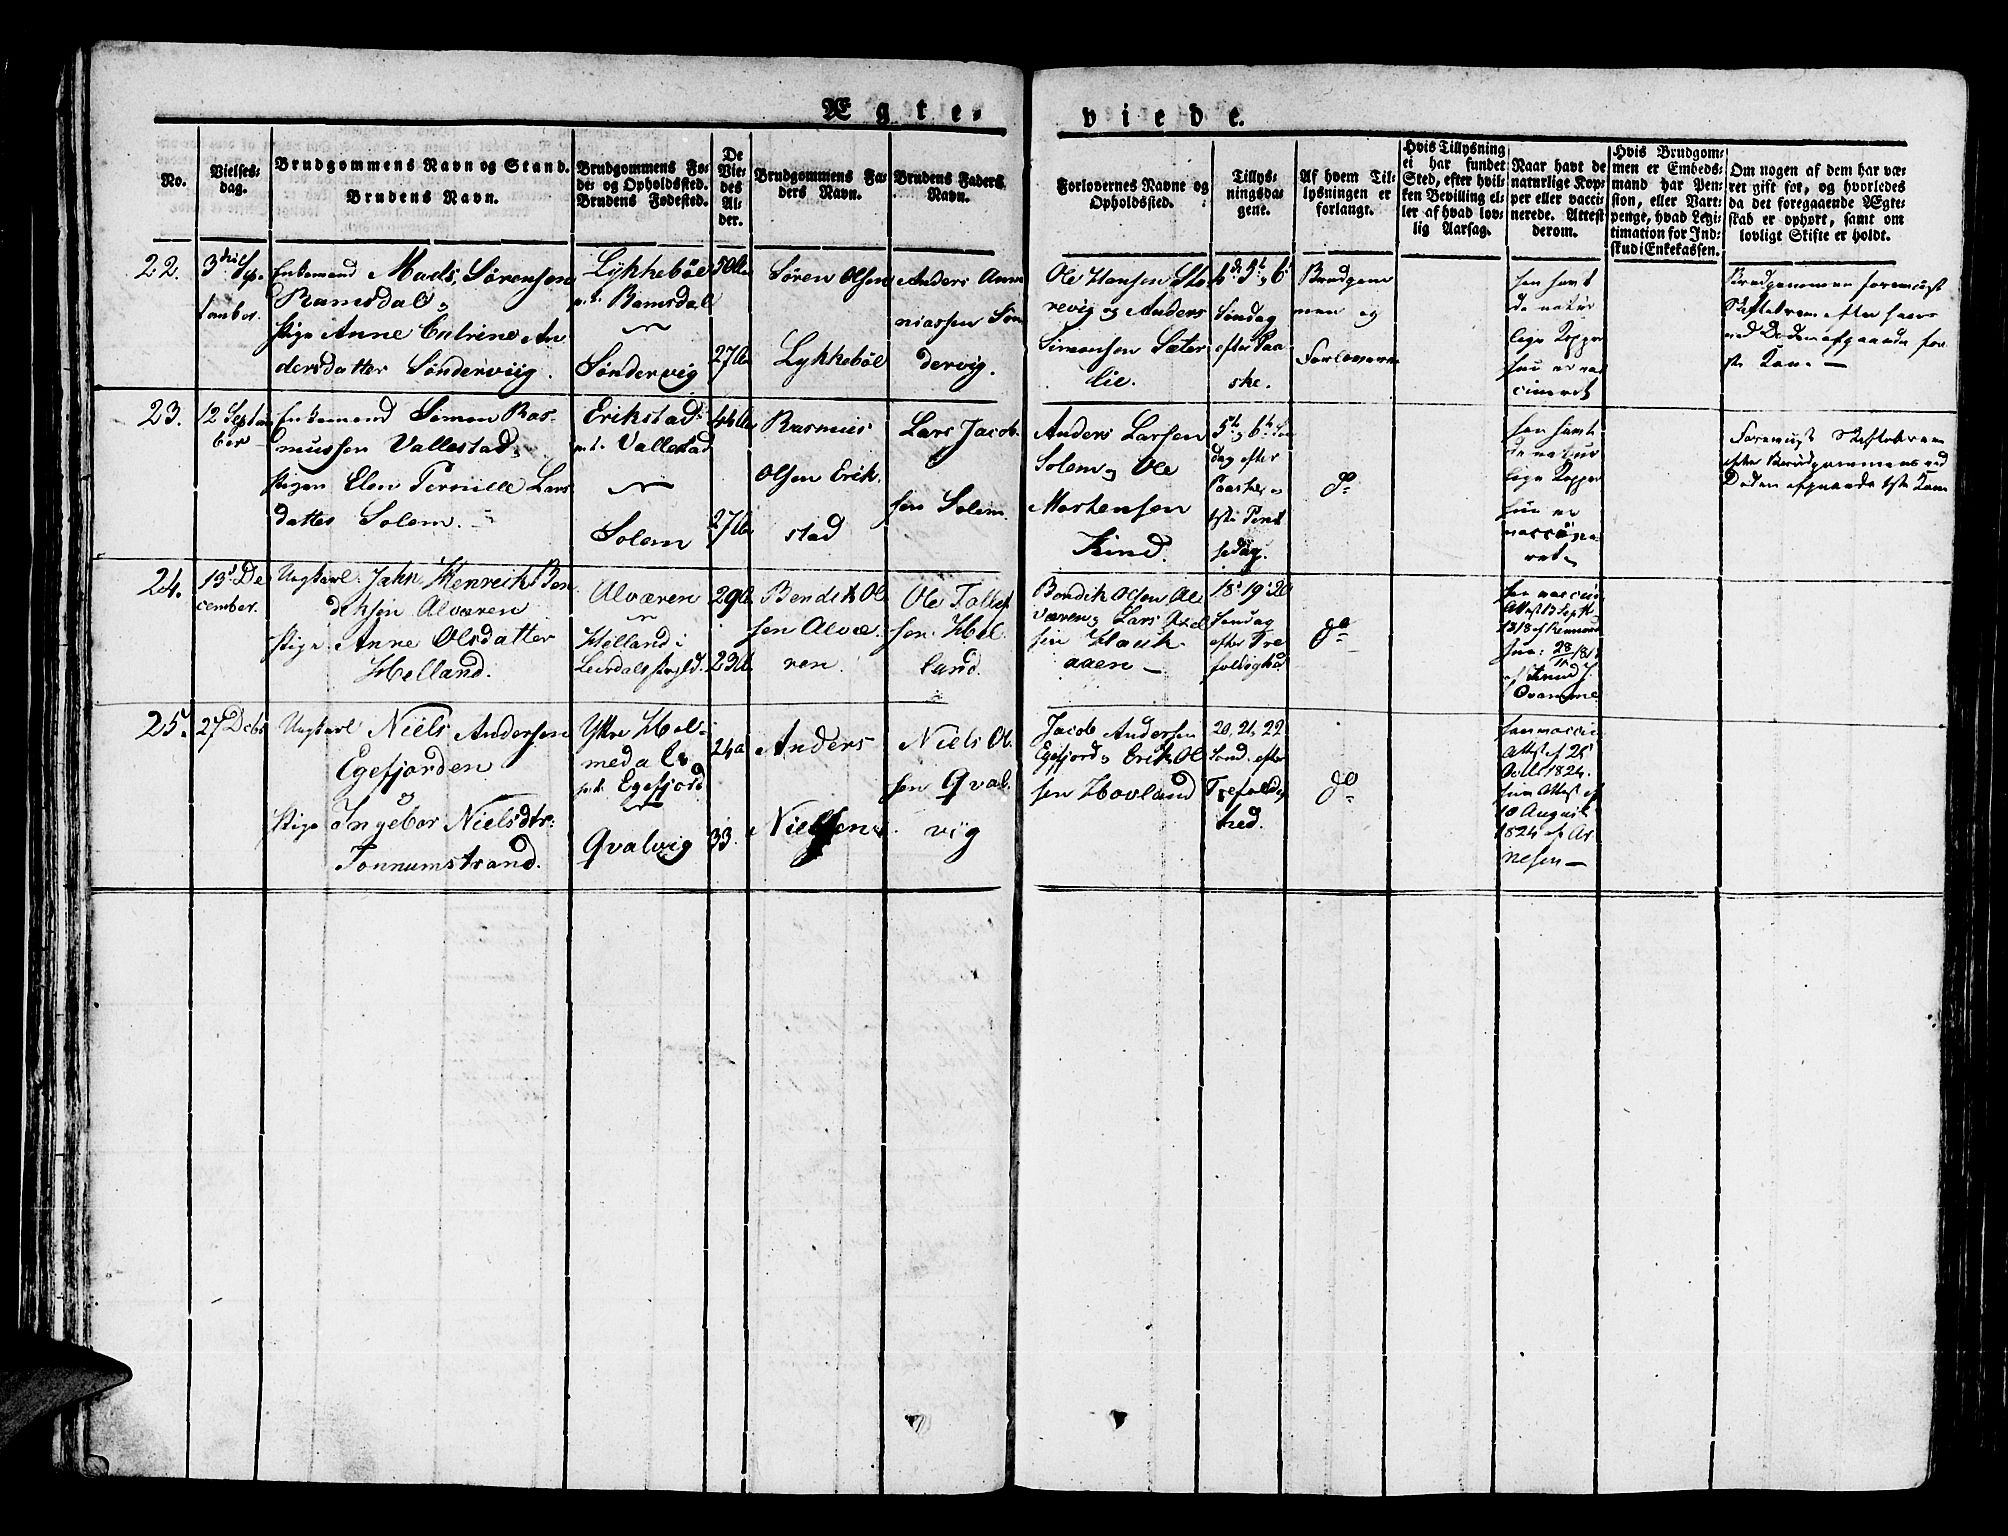 Ægte-
viede.
No.
Vielses-
dag.
Brudgommens Navn og Stand.
Brudens Navn.
Brudgommens Fø-
de- og Opholdssted.
Brudens Fødested.
De
Vie-
des
Al-
der.
Brudgommens Fa-
ders Navn.
Brudens Faders
Navn.
Forlovernes Navne og
Opholdssted.
Tillys-
ningsda-
gene.
Af hvem Til-
lysningen er
forlangt.
Hvis Tillysning
ei har fundet
Sted, efter hvil-
ken Bevilling el-
ler af hvad lov-
lig Aarsag.
Naar havt de
naturlige Kop-
per eller vacci-
nerede. Attest
derom.
Hvis Brudgom-
men er Embeds-
mand har Pen-
sion, eller Vart-
penge, hvad Legi-
timation for Ind-
skud i Enkekassen.
Om nogen af dem har væ-
ret gift før, og hvorledes
da det foregaaende Ægte-
skab er ophørt, samt om
lovligt Skifte er holdt.
22.
3die Sep-
tember
Enkemand Mads Sørensen
Ramsdal og
Pige Anne Catrine An
dersdatter Søndervig.
Lykkebøe
Ramsdal
Søndervig
50
27
Søren Olsen
Lykkebøe
Anders Anna
niassen Søn
dervig.
Ole Hansen Sto
revig og Anders
Simonsen Sæter
lie.
4de 5te og 6te
Søndag
efter Paa
ske.
Brudgom
men og
Forloverne
han havt
de natur
lige Kopper
hun er vac
cineret
Brudgommen foreviist
Skiftebrev efter hans
ved Døden afgaaede for
ste Kone
23.
12 Septem
ber
Enkemand Simon Ras-
mussen Vallestad og
Pigen Elen Pernille Lars
datter Solem.
Erikstad
Vallestad
Solem
44
27
Rasmus
Olsen Erik
stad
Lars Jacob
sen Solem.
Anders Larsen
Solem og Ole
Mortensen
Kind.
5te og 6te Søn
dag efter
Paaske og
1ste Pint
sedag.
do
han havt
de natur
lige Kopper
hun er
vaccine
ret
Foreviist Skiftebrev
efter Brudgommens ved
Døden afgaaede 1ste Kone
24.
13de De
cember.
Ungkarl Jahn Henrich Ben
dichsen Alværen
Pige Anne Olsdatter
Helland.
Alværen
Helland i
29
23
Bendik Ol
sen Alvæ
ren.
Ole Tolles
sen Hel
land.
Bendik Olsen Al
væren og Lars Axel
sen Hauk
aaen
18 19 20
Søndag
efter Tre
foldighed
do
han vaccin
Attest 13 Sept
1818 af
hun
af Knud
Ovamme
25.
27 Decbr
Ungkarl Niels Andersen
Egefjorden
og
Pige Ingebor Nielsdtr:
Tonnumstrand.
Yttre Hol-
medal
Egefjord
Qvalvig
24
33.
Anders
Nielsen
Niels Ol
sen Qval
vig
Jacob Andersen
Egefjord og Erik Ol
sen Hovland
20, 21, 22
Sønd. efter
Trefoldig
hed.
do
han vacci
Attest af 25
1824.
hun Attest af
10 August
1824 af Ar
nesen